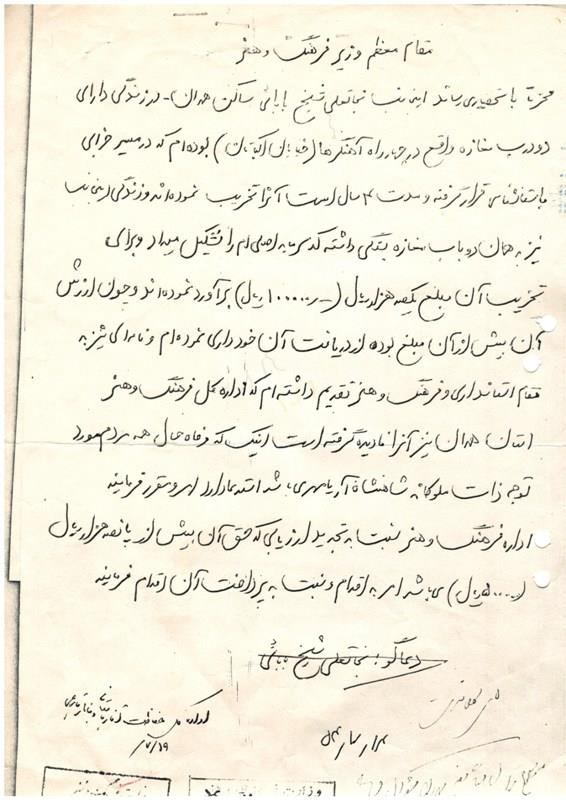 مقام معظم وزیر فرهنگ و هنر
محترماً باستحضار می رساند اینجانب نجاتعلی شیخ بابائی ساکن همدان - در زندگی دارای
دو درب مغازه واقع در چهارراه آهنگرها (خیابان اکباتان) بوده ام که در مسیر خرابی
باستانشناسی قرار گرفته و مدت ۴ سال است آنرا تخریب نموده اند و زندگی اینجانب
نیز به همان دو باب مغازه بستگی داشته که سرمایه اصلی ام را تشکیل میداد و برای
تخریب آن مبلغ یکصد هزار ریال (-ر۱۰۰۰۰۰ ریال) برآورد نموده اند و چون ارزش
آن بیش از آن مبلغ بوده از دریافت آن خودداری نموده ام و نامه ای نیز به
مقام استانداری و فرهنگ و هنر تقدیم داشته ام که اداره کل فرهنگ و هنر
استان همدان نیز آنرا نادیده گرفته است اینک که رفاه حال همه مردم مورد
توجه ذات ملوکانه شاهنشاه آریامهر می باشد استدعا دارد امر و مقرر فرمایند
اداره فرهنگ و هنر نسبت به تجدید ارزیابی که حق آن بیش از پانصد هزار ریال
( ریال) می باشد امر به اقدام و نسبت به پرداخت آن اقدام فرمایند
دعاگو: نجاتعلی شیخ بابائی
اداره کل حفاظت آثار
۷/۱۹